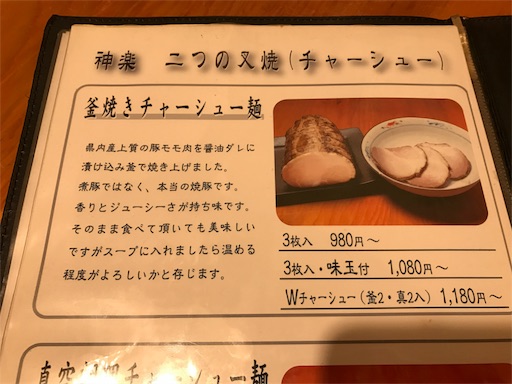 神楽 二つの叉焼(チャーシュー)
釜焼きチャーシュー麺
県内産上質の豚モモ肉を醤油ダレに
漬け込み釜で焼き上げました。
煮豚ではなく、本当の焼豚です。
香りとジューシーさが持ち味です。
そのまま食べて頂いても美味しい
ですがスープに入れましたら温める
程度がよろしいかと存じます。
3枚入 980円~
3枚入・味玉付 1,080円~
Wチャーシュー(釜2・真2入) 1,180円~
真空
チャーシュー麺